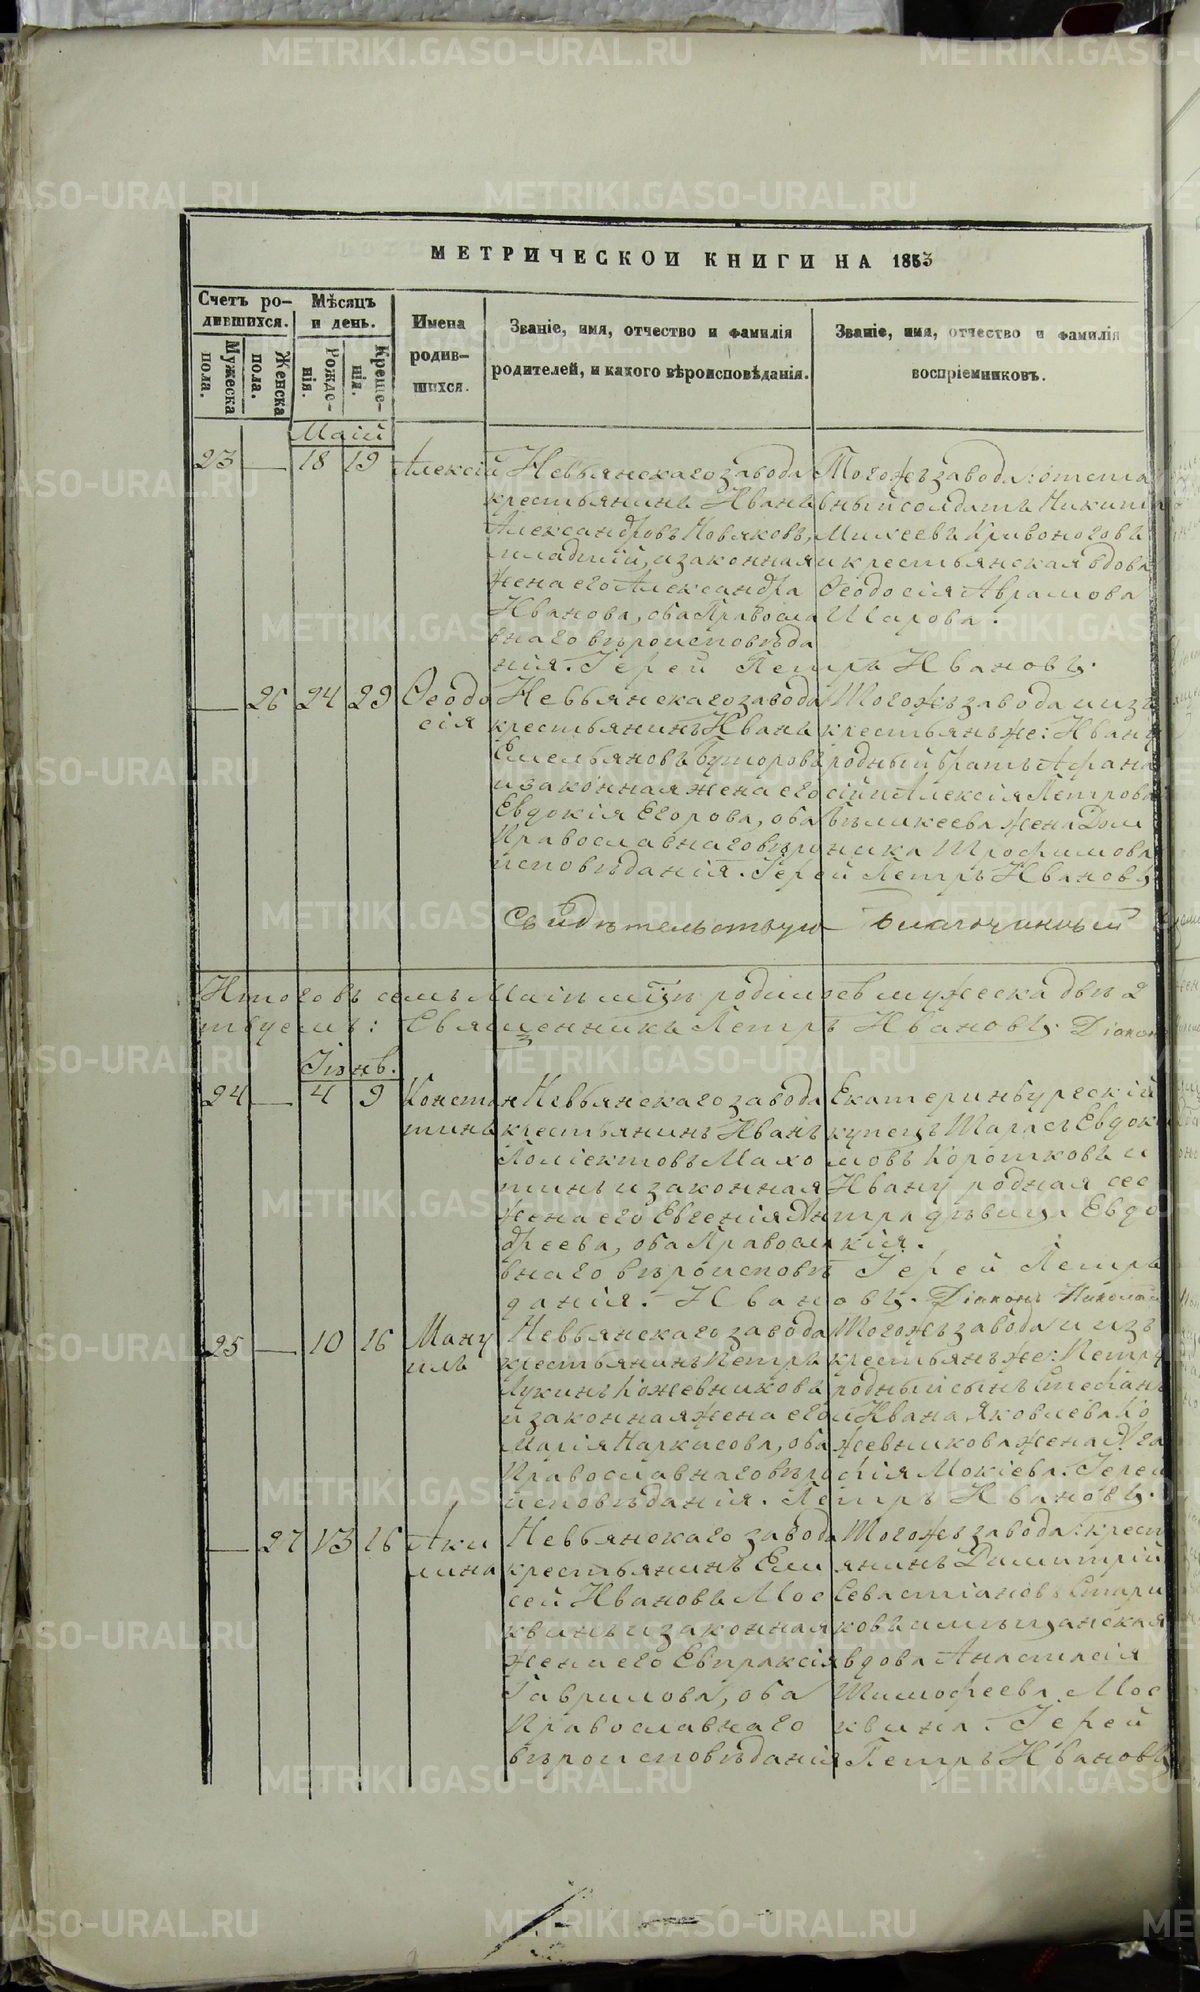 МЕТРИЧЕСКОЙ КНИГИ НА 1853
Счетъ родившихся.
Мужеска пола.
Женска пола.
Мѣсяцъ и день.
Рожденія.
Крещенія.
Имена родившихся.
Званіе, имя, отчество и фамилія
родителей, и какого вѣроисповѣданія.
Званіе, имя, отчество и фамилія
воспріемниковъ.
Маій
23 — 18 19 Алексій
Невьянскаго завода
крестьянинъ Иванъ
Александровъ Новяковъ,
младшій, и законная
жена его Александра
Иванова, оба Правосла
внаго вѣроисповѣда
нія. Іерей Петръ Ивановъ.
Тогожъ завода: отста
вный солдатъ Никита
Михеевъ Кривоноговъ
и крестьянская вдова
Ѳеодосія Аврамова
Шарова.
— 26 24 29 Ѳеодо
сія
Невьянскаго завода
крестьянинъ Иванъ
Емельяновъ Буторовъ
и законная жена его
Евдокія Егорова, оба
Православнаго вѣро
исповѣданія. Іерей Петръ Ивановъ
Тогожъ завода и изъ
крестьянъ же: Ивану
родный братъ Афана
сій и Алексія Петрова
жена Дом
ника Трофимова
Свидѣтельствую Благочинный
Итого въ семъ Маіи мцѣ родилось мужеска двѣ 2
Священникъ Петръ Ивановъ. Діаконъ
Іюнь.
24 — 4 9 Констан
тинъ
Невьянскаго завода
крестьянинъ Иванъ
Поліектовъ Махо
тинъ и законная
жена его Евгенія Ан
дреева, оба Правосла
внаго вѣроисповѣ
данія.
Екатеринбургскій
купецъ Тарасъ Евдоки
мовъ Коротковъ и
Ивану родная сес
тра дѣвица Евдо
кія.
Іерей Петръ
Ивановъ. Діаконъ Николай
25 — 10 16 Ману
илъ
Невьянскаго завода
крестьянинъ Петръ
Лукинъ Кожевниковъ
и законная жена его
Марія Наркисова, оба
Православнаго вѣро
исповѣданія. Петръ Ивановъ.
Тогожъ завода и изъ
крестьянъ же: Петру
родный сынъ Стефанъ
и Ивана Яковлева Ко
жевникова жена Ага
фія Мокіева. Іерей
— 27 13 16 Аки
лина
Невьянскаго завода
крестьянинъ Ели
сей Ивановъ Мос
квинъ и законная
жена его Евпраксія
Гаврилова, оба
Православнаго
вѣроисповѣданія
Тогожъ завода: крест
янинъ Димитрій
Севастіановъ Стари
ковъ и мѣщанская
вдова Анастасія
Тимофеева Мос
квина. Іерей
Петръ Ивановъ
METRIKI.GASO-URAL.RU